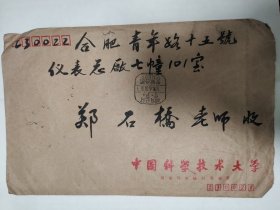 230022 合肥青年路十五號
仪表总厰七幢101室
郑石橋老师收
中国科学技术大学